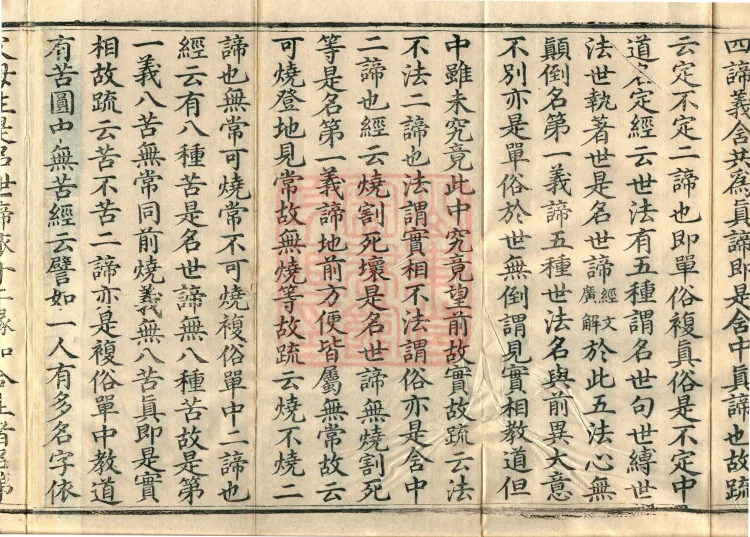 四諦義含共為真諦即是含中真諦也故疏
云定不定二諦也即單俗複真俗是不定中
道名定經云世法有五種謂名世句世縛世
法世執著世是名世諦經文廣解於此五法心無
顛倒名第一義諦五種世法名與前異大意
不別亦是單俗於世無倒謂見實相教道但
中雖未究竟此中究竟望前故實故疏云法
不法二諦也法謂實相不法謂俗亦是含中
二諦也經云燒割死壞是名世諦無燒割死
等是名第一義諦地前方便皆屬無常故云
可燒登地見常故無燒等故疏云燒不燒二
諦也無常可燒常不可燒複俗單中二諦也
經云有八種苦是名世諦無八種苦故是第
一義八苦無常同前燒義無八苦真即是實
相故疏云苦不苦二諦亦是複俗單中教道
有苦圓中無苦經云譬如一人有多名字依
父母生是名世諦依十二緣和合生者名第